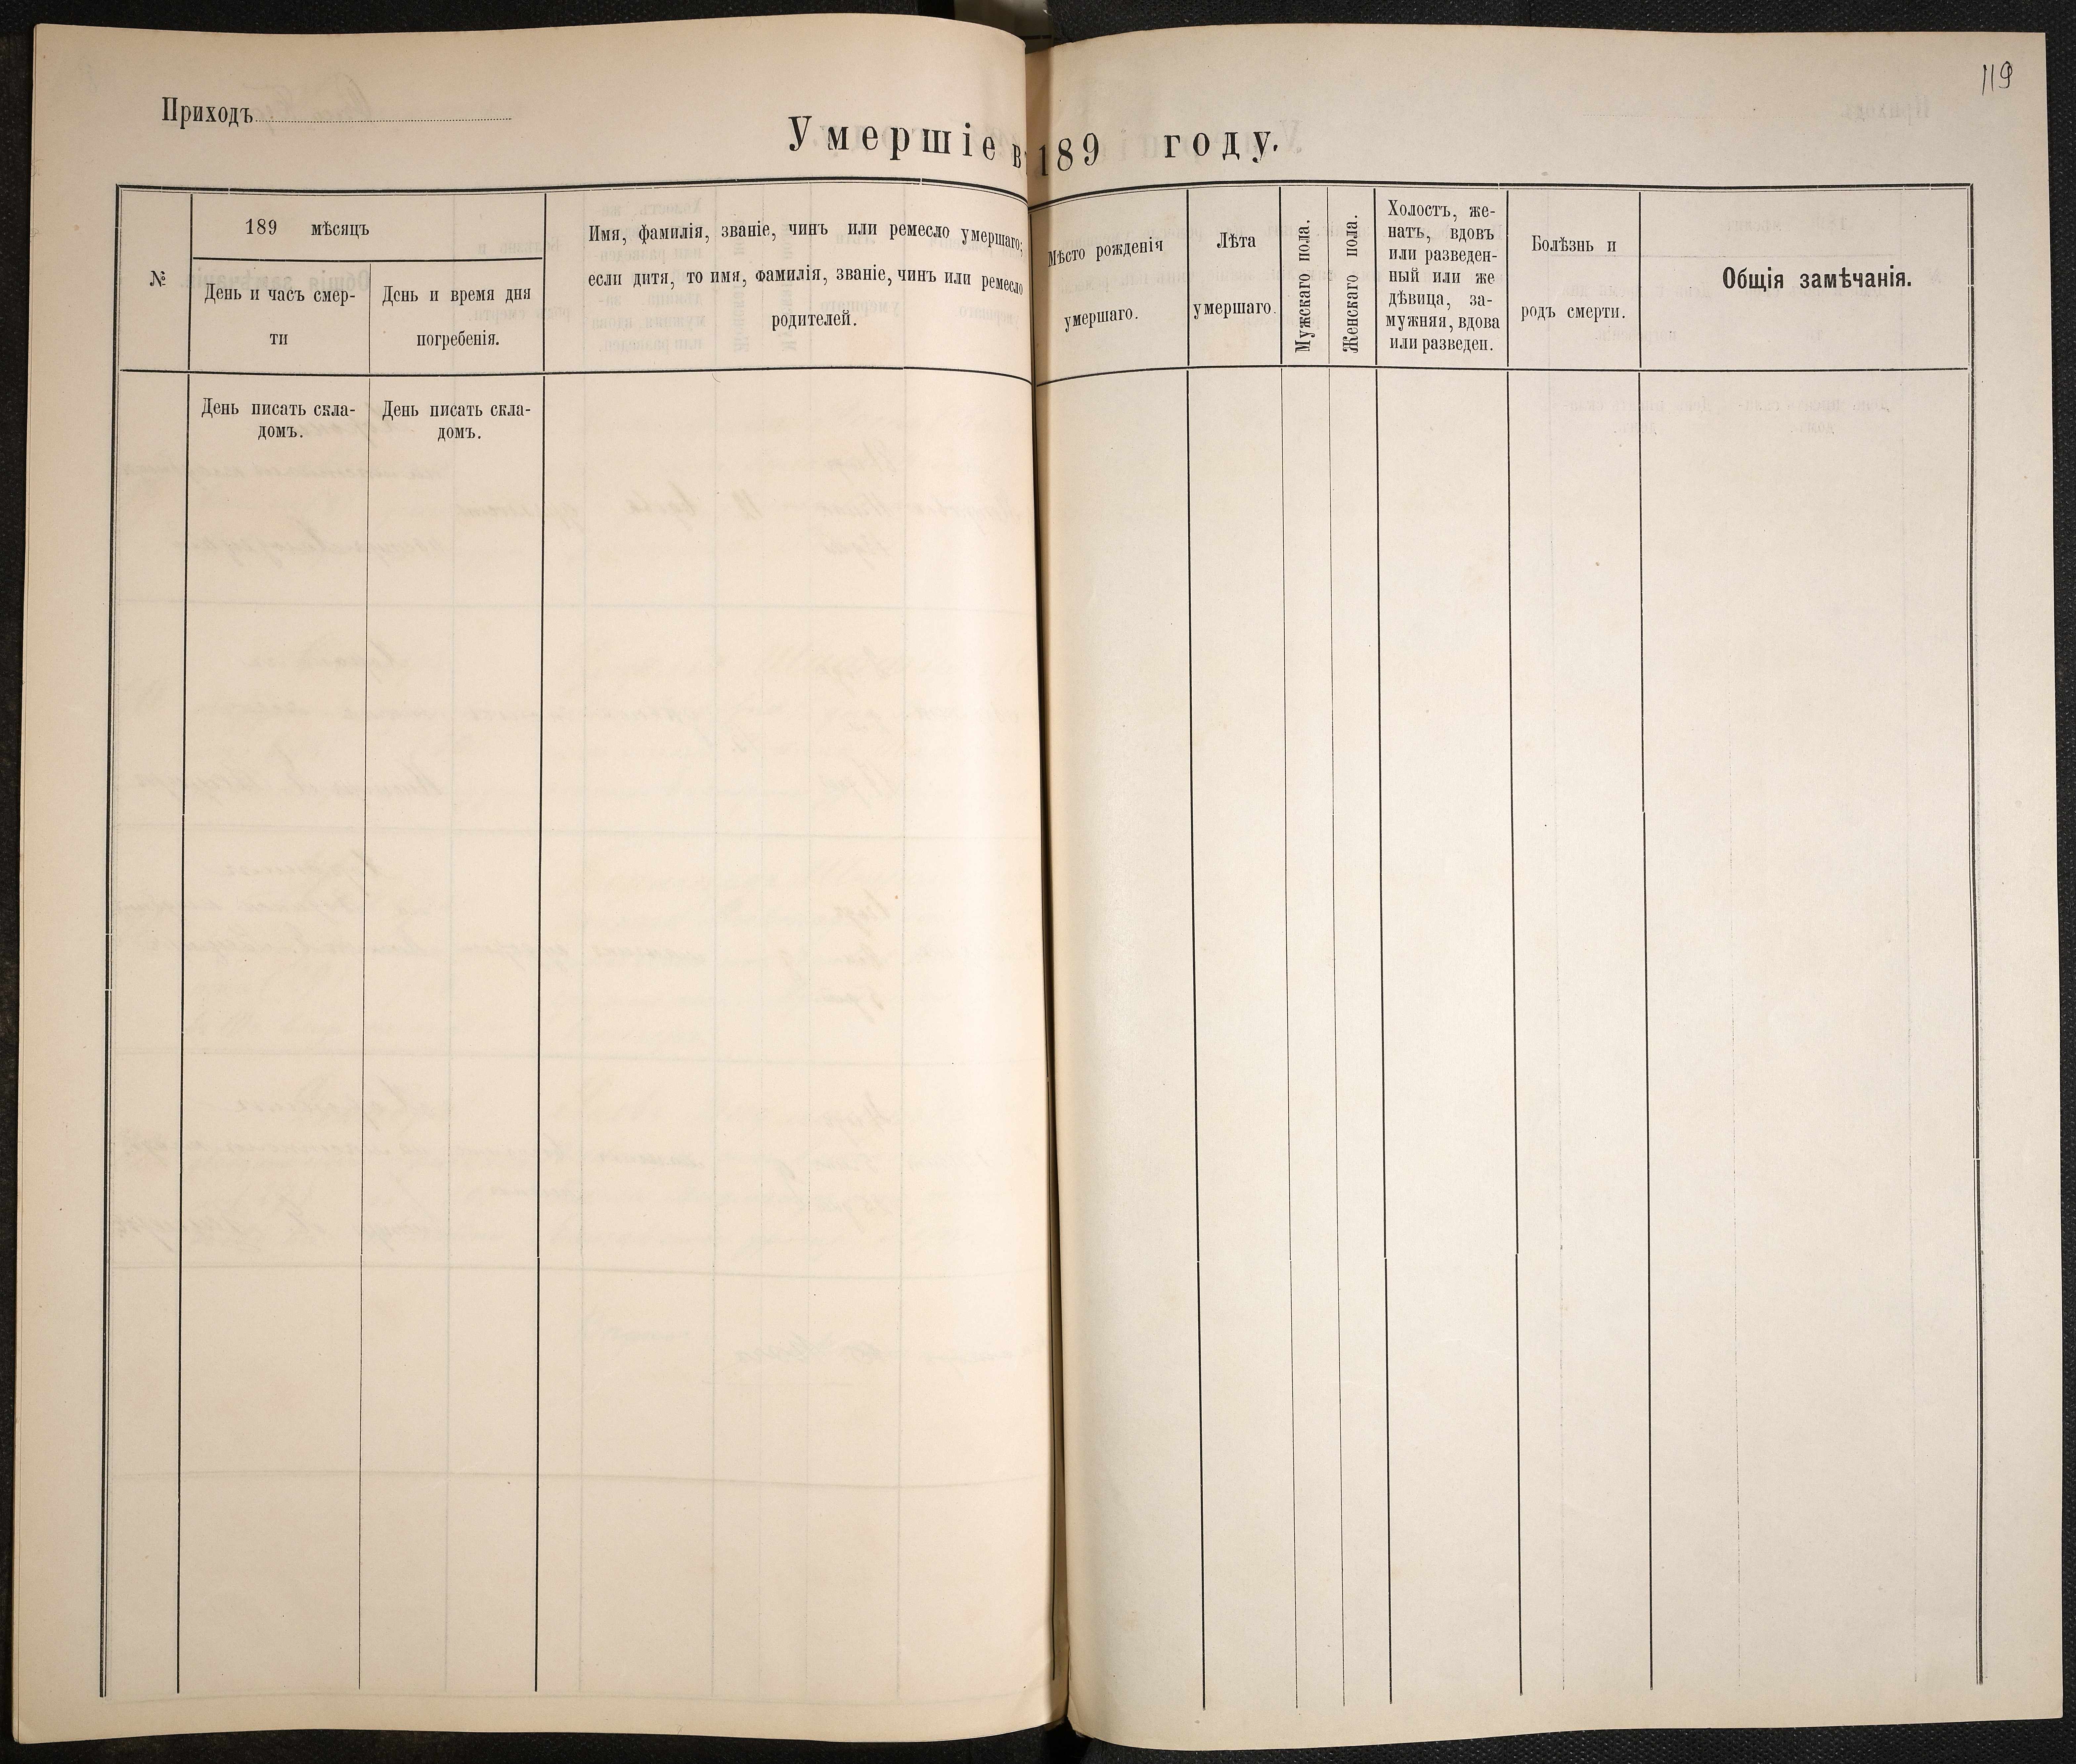 119
Приходъ
Умершіе въ 189 году.
№
189 мѣсяцъ
День и часъ смер-
ти
День и время дня
погребенія.
Имя, фамилія, званіе, чинъ или ремесло умершаго;
если дитя, то имя, фамилія, званіе, чинъ или ремесло
родителей.
Мѣсто рожденія
умершаго.
Лѣта
умершаго.
Мужскаго пола.
Женскаго пола.
Холостъ, же-
натъ, вдовъ
или разведен-
ный или же
дѣвица, за-
мужняя, вдова
или разведен.
Болѣзнь и
родъ смерти.
Общія замѣчанія.
День писать скла-
домъ.
День писать скла-
домъ.